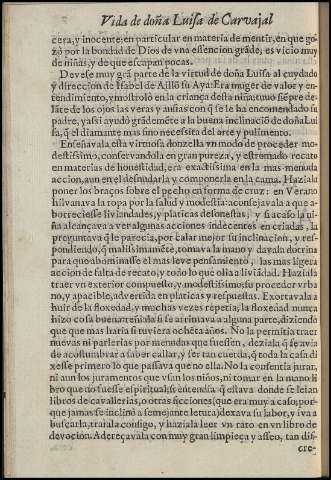 Vida de doña Luisa de Carvajal
cera, y inocente: en particular en materia de mentir, en que go-
zò por la bondad de Dios de vna essencion grãde, es vicio muy
de niñas, y de que escapan pocas.
Deuese muy grã parte de la virtud de doña Luisa al cuydado
y direccion de Isabel de Aillõ su Aya: Era muger de valor y en-
tendimiento, y mostrolo en la criança desta niña: tuuo siẽpre de-
lãte de los ojos las veras y ansias con q̃ se le ha encomendado su
padre, y assi ayudó grãdemẽte a la buena inclinació de doña Lui
sa, q̃ el diamante mas fino necessita del arte y pulimento.
Enseñauala esta virtuosa donzella vn modo de proceder mo-
destissimo, conseruandola en gran pureza, y estremado recato
en materias de honestidad, era exactissima en la mas menuda
accion, aun en el desnudarla y componerla en la cama. Haziala
poner los braços sobre el pecho en forma de cruz: en Verano
hiluanaua la ropa por la salud y modestia: aconsejauala a que a-
borreciesse liuiandades, y platicas desonestas; y si acaso la ni-
ña alcançaua a ver algunas acciones indecentes en criadas, la
preguntaua q̃ le parecia, por calar mejor su inclinacion, y res-
pondiendo, q̃ malissimamẽte, tomaua la mano y daua la dotrina
para que abominasse el mas leue pensamiento; las mas ligera
accion de falta de recato, y todo lo que olia a liuiãdad. Haziala
traer vn exterior compuesto, y modestissimo; su proceder vrba
no, y apacible, aduertida en platicas y respuestas. Exortauala a
huir de la floxedad, y muchas vezes repetia; la floxedad nunca
hizo cosa buena: reñiala si se arrimaua a alguna parte, diziendo
que que mas haria si tuuiera ochẽta años. No la permitia traer
nueuas ni parlerias por menudas que fuessen, dezialà q̃ se auia
de acostumbrar a saber callar, y ser tan cuerda, q̃ toda la casa di
xesse primero lo que passaua que no ella. No la consentia jurar,
ni aun los juramentos que vsan los niños, ni tomar en la mano li
bro que no fuesse espiritual; si entendia q̃ estaua donde se leian
libros de cauallerias, o otras ficciones (que era muy a caso; por-
que jamas se inclinò a semejante letura) dexaua su labor, y iva a
buscarla, traiala consigo, y haziala leer vn rato en vn libro de
deuocion. Adereçauala con muy gran limpieça y asseo, tan dis-
cre-